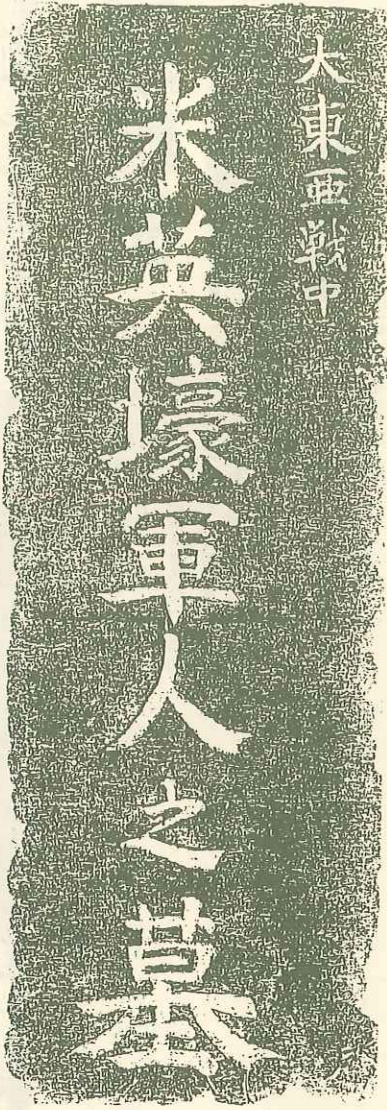 大東亜戦中
米英壕軍人之墓